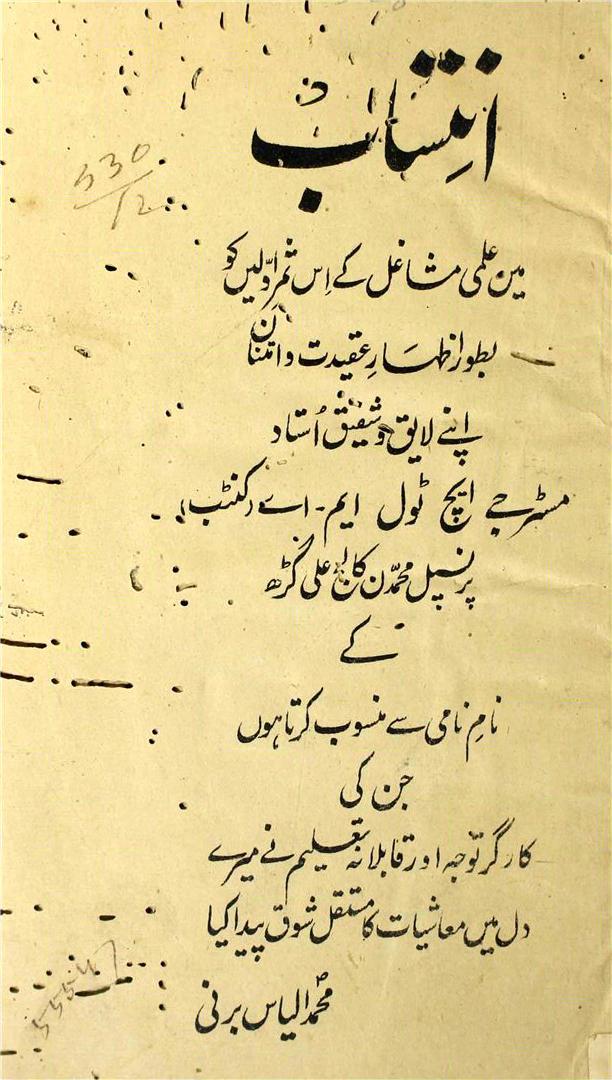 انتساب
530/12
مین علمی مشاغل کے اِس ثمر اوّلیں کو
بطور اظہارِ عقیدت و امتنان
اپنے لایق و شفیق اُستاد
مسٹر جے ایچ ٹول ایم۔اے (کنٹب)
پرنسپل محمّدن کالج علی گڑھ
کے
نامِ نامی سے منسوب کرتا ہوں
جن کی
کارگر توجہ اور قابلانہ تعلیم نے میرے
دل میں معاشیات کا مستقل شوق پیدا کیا
محمدؐ الیاس برنی